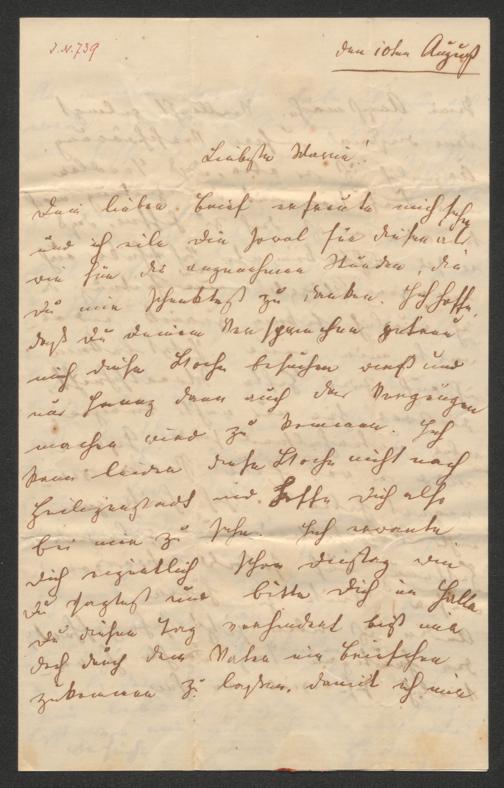 J.N. 739
den 10ten August
Liebste Marie!
Dein lieber Brief erfreute mich sehr
und ich eile Dir sowol für diesen als
wie für die angenehmen Stunden, die
Du mir schenktest zu danken. Ich hoffe,
daß Du deinem Versprechen getreu
mich diese Woche besuchen wirst und
uns Franz dann auch das Vergnügen
machen wird zu kommen. Ich
kann leider diese Woche nicht nach
Heiligenstadt und hoffe Dich also
bei mir zu sehn. Ich erwarte
Dich eigentlich schon Dienstag wie
Du sagtest und bitte Dich im Falle
Du diesen Tag verhindert bist mir
doch durch den Vater ein Briefchen
zukommen zu lassen, damit ich mir